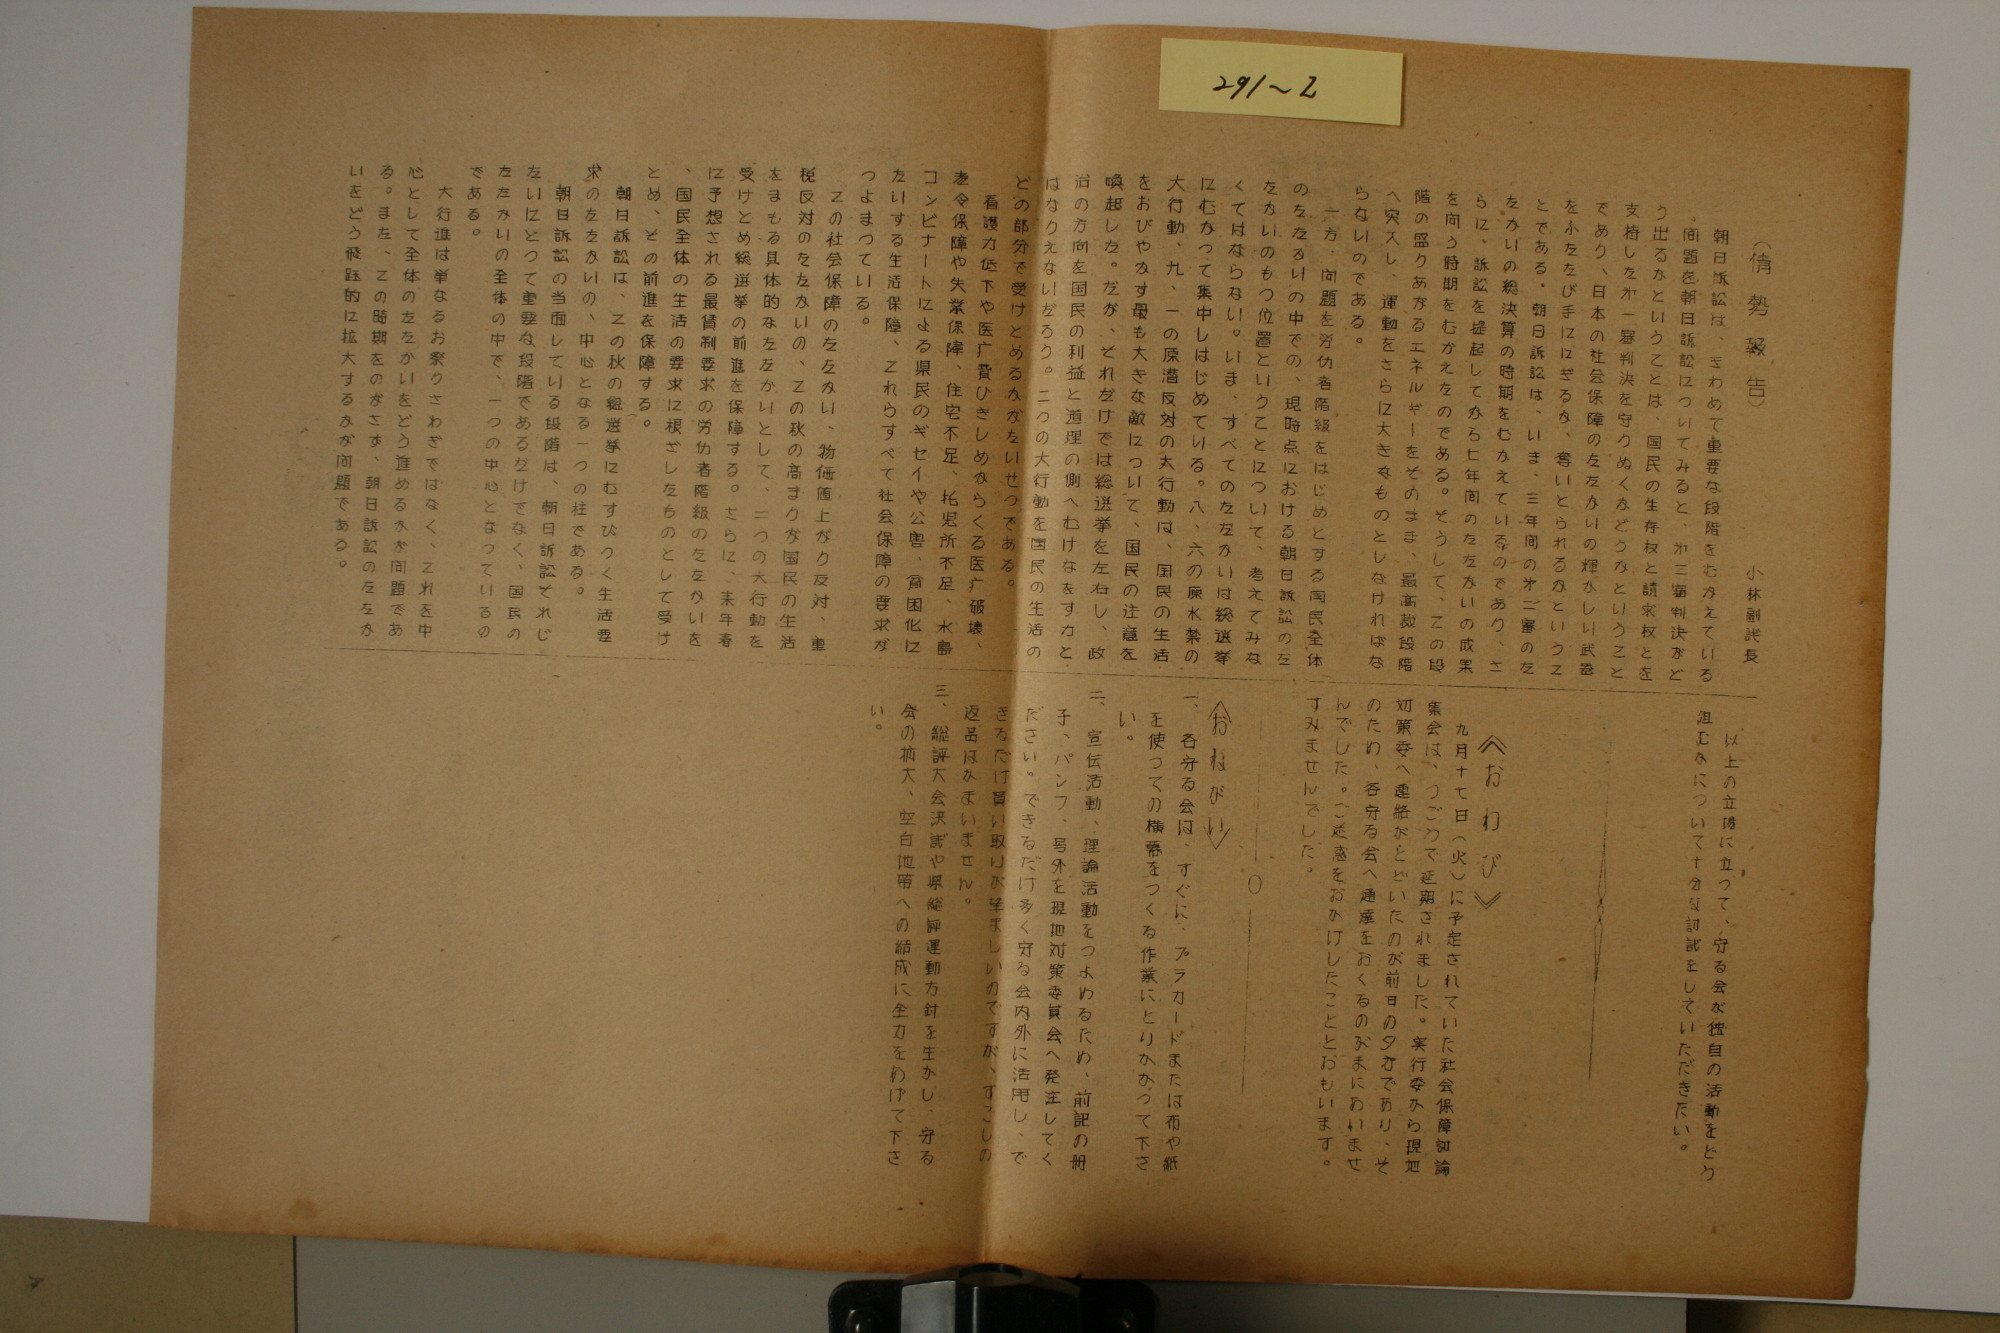 291~2
(情勢報告)
小林副議長
朝日訴訟は、きわめて重要な段階をむかえている
。問題を朝日訴訟についてみると、第二審判決がど
う出るかということは、国民の生存权と請求权とを
支持した第一審判決を守りぬくかどうかということ
であり、日本の社会保障のたたかいの輝かしい武器
をふたたび手ににぎるか、奪いとられるかというこ
とである。朝日訴訟は、いま、三年间の第二審のた
たかいの総決算の時期をむかえているのであり、さ
らに、訴訟を提起してから七年间のたたかいの成果
を问う時期をむかえたのである。そうして、この段
階の盛りあがるエネルギーをそのまま、最高裁段階
へ突入し、運動をさらに大きなものとしなければな
らないのである。
一方、问題を労仂者階級をはじめとする国民全体
のたたかいの中での、現時点における朝日訴訟のた
たかいのもつ位置ということについて、考えてみな
くてはならない。いま、すべてのたたかいは総選挙
にむかって集中しはじめている。八、六の原水禁の
大行動、九、一の原潜反対の大行動は、国民の生活
をおびやかす最も大きな敵について、国民の注意を
喚起した。だが、それだけでは総選挙を左右し、政
治の方向を国民の利益と道理の側へむけなをす力と
はなりえないだろう。二つの大行動を国民の生活の
どの部分で受けとめるかがたいせつである。
看護力低下や医疒費ひきしめからくる医疒破壊、
老令保障や失業保障、住宅不足、托児所不足、水島
コンビナートによる県民のギセイや公害、貧困化に
たいする生活保障、これらすべて社会保障の要求が
つよまつている。
この社会保障のたたかい、物価値上がり反対、重
税反対のたたかいの、この秋の高まりが国民の生活
をまもる具体的なたたかいとして、二つの大行動を
受けとめ総選挙の前進を保障する。さらに、来年春
に予想される最賃制要求の労仂者階級のたたかいを
、国民全体の生活の要求に根ざしたものとして受け
とめ、その前進を保障する。
朝日訴訟は、この秋の総選挙にむすびつく生活要
求のたたかいの、中心となる一つの柱である。
朝日訴訟の当面している段階は、朝日訴訟それじ
たいにとつて重要な段階であるだけでなく、国民の
たたかいの全体の中で、一つの中心となつているの
である。
大行進は単なるお祭りさわぎではなく、これを中
心として全体のたたかいをどう進めるかが问題であ
る。また、この時期をのがさず、朝日訴訟のたたか
いをどう飛跃的に拡大するかが问題である。
以上の立場に立つて、守る会が独自の活動をどう
組むかについて十分な討議をしていただきたい。
《おわび》
九月十七日(火)に予定されていた社会保障討論
集会は、つごうで延期されました。実行委から現地
対策委へ連絡がとどいたのが前日の夕方であり、そ
のため、各守る会へ通達をおくるのがまにあいませ
んでした。ご迷惑をおかけしたこととおもいます。
すみませんでした。
〈おねがい〉
一、各守る会は、すぐに、プラカードまたは布や紙
を使つての横幕をつくる作業にとりかかつて下さ
い。
二、宣伝活動、理論活動をつよめるため、前記の册
子、パンフ、号外を現地対策委員会へ発注してく
ださい。できるだけ多く守る会内外に活用し、で
きるだけ買い取りが望ましいのですが、すこしの
返品はかまいません。
三、総評大会決議や県総評運動方針を生かし、守る
会の拡大、空白地帯への結成に全力をあげて下さ
い。